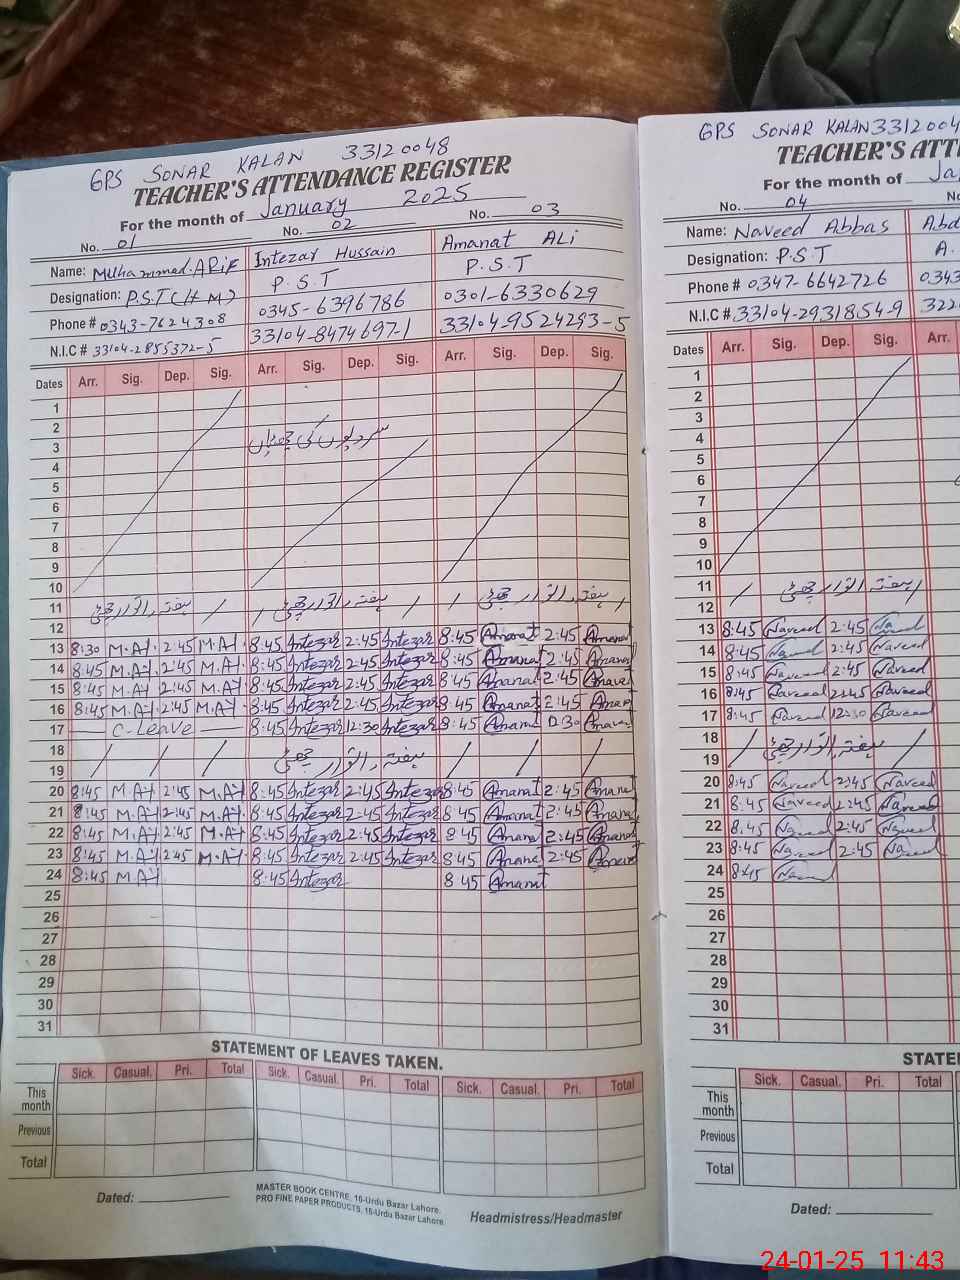 GPS SONAR KALAN 33120048
TEACHER'S ATTENDANCE REGISTER
For the month of January 2025
No. 01 No. 02 No. 03
Name: Muhammad.ARiF Intezar Hussain Amanat ALi
Designation: P.S.T(H.M) P.S.T P.S.T
Phone # 0343-7624308 0345-6396786 0301-6330629
N.I.C # 33104-2855372-5 33104-8474697-1 33104-9524293-5
Dates Arr. Sig. Dep. Sig. Arr. Sig. Dep. Sig. Arr. Sig. Dep. Sig.
1
2
3 سردیوں کی چھٹیاں
4
5
6
7
8
9
10
11 ہفتہ، اتوار چھٹی ہفتہ، اتوار چھٹی ہفتہ، اتوار چھٹی
12
13 8:30 M.A 2:45 M.A 8:45 Intezar 2:45 Intezar 8:45 Amanat 2:45 Amanat
14 8:45 M.A 2:45 M.A 8:45 Intezar 2:45 Intezar 8:45 Amanat 2:45 Amanat
15 8:45 M.A 2:45 M.A 8:45 Intezar 2:45 Intezar 8:45 Amanat 2:45 Amanat
16 8:45 M.A 2:45 M.A 8:45 Intezar 2:45 Intezar 8:45 Amanat 2:45 Amanat
17 C-Leave 8:45 Intezar 12:30 Intezar 8:45 Amanat 12:30 Amanat
18 ہفتہ، اتوار چھٹی
19
20 8:45 M.A 2:45 M.A 8:45 Intezar 2:45 Intezar 8:45 Amanat 2:45 Amanat
21 8:45 M.A 2:45 M.A 8:45 Intezar 2:45 Intezar 8 45 Amanat 2:45 Amanat
22 8:45 M.A 2:45 M.A 8:45 Intezar 2:45 Intezar 8 45 Amanat 2:45 Amanat
23 8:45 M.A 2:45 M.A 8:45 Intezar 2:45 Intezar 8 45 Amanat 2:45 Amanat
24 8:45 M.A 8:45 Intezar 8 45 Amanat
25
26
27
28
29
30
31
STATEMENT OF LEAVES TAKEN.
Sick. Casual. Pri. Total Sick. Casual. Pri. Total Sick. Casual. Pri. Total
This month
Previous
Total
Dated:
MASTER BOOK CENTRE, 16-Urdu Bazar Lahore.
PRO FINE PAPER PRODUCTS, 16-Urdu Bazar Lahore
Headmistress/Headmaster
GPS SONAR KALAN 3312004
TEACHER'S ATT
For the month of Ja
No. 04
Name: Naveed Abbas Abd
Designation: P.S.T A.
Phone # 0347-6642726 0343
N.I.C # 33104-2931854-9 322
Dates Arr. Sig. Dep. Sig. Arr.
1
2
3
4
5
6
7
8
9
10
11 ہفتہ، اتوار چھٹی
12
13 8:45 Naveed 2:45 Naveed
14 8:45 Naveed 2:45 Naveed
15 8:45 Naveed 2:45 Naveed
16 8:45 Naveed 2:45 Naveed
17 8:45 Naveed 12:30 Naveed
18 ہفتہ، اتوار چھٹی
19
20 8:45 Naveed 2:45 Naveed
21 8:45 Naveed 2:45 Naveed
22 8:45 Naveed 2:45 Naveed
23 8:45 Naveed 2:45 Naveed
24 8:45 Naveed
25
26
27
28
29
30
31
STATE
Sick. Casual. Pri. Total
This month
Previous
Total
Dated:
24-01-25 11:43